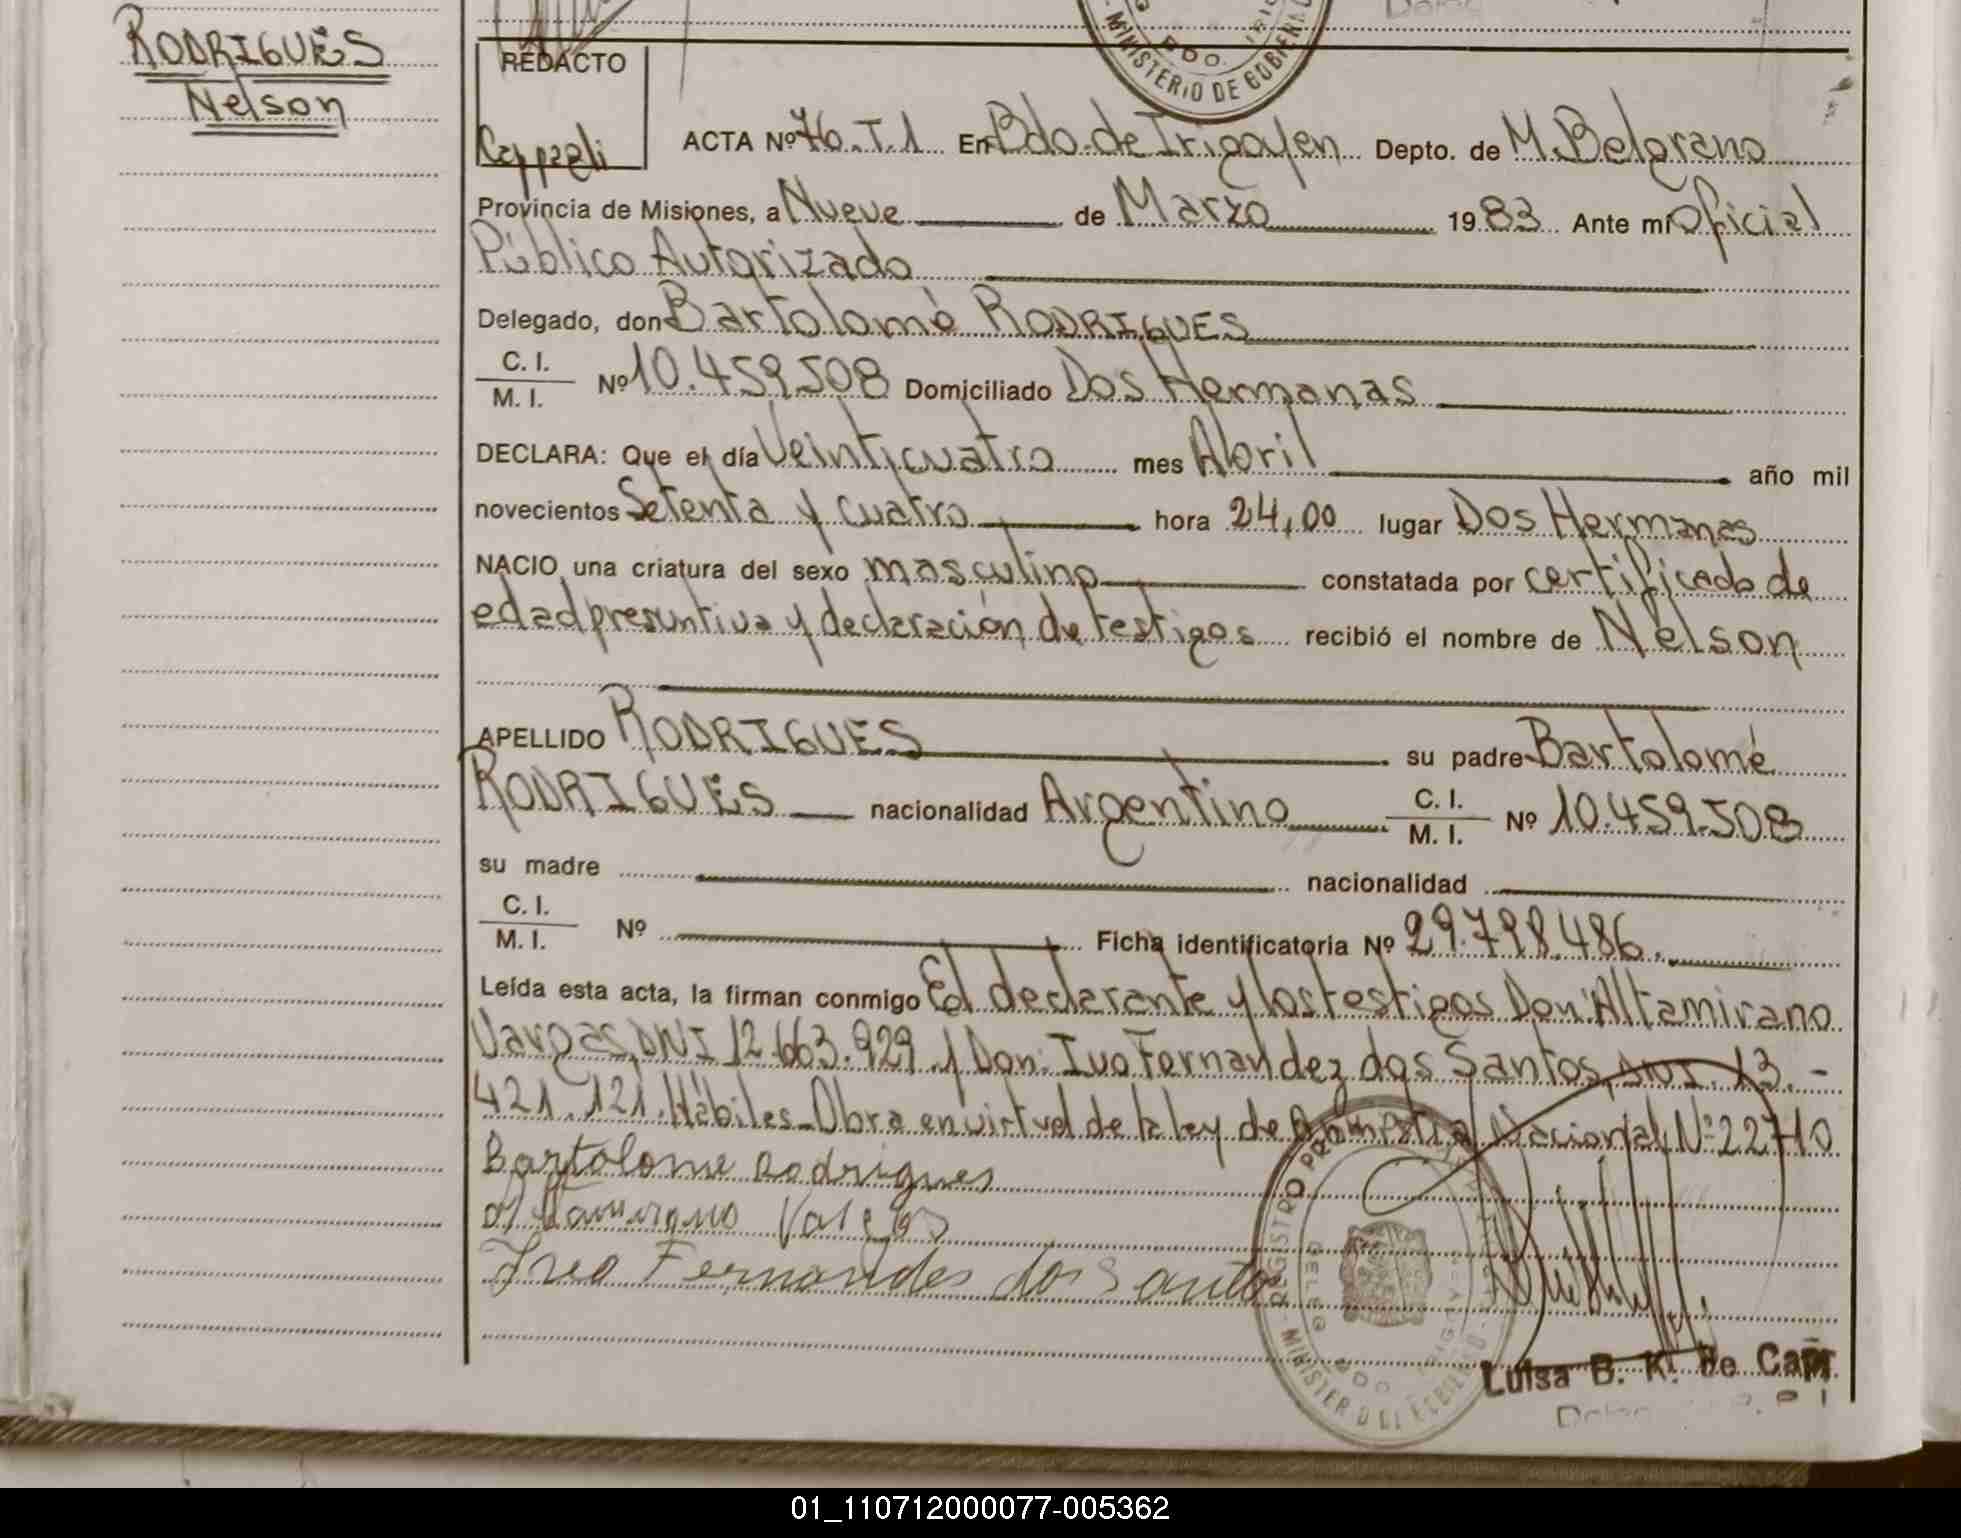 RODRIGUES
Nelson
REDACTO
MINISTERIO DE GOBIERNO
ACTA Nº 76.T.1 En Bdo. de Irigoyen Depto. de M. Belgrano
Provincia de Misiones, a Nueve de Marzo 1983 Ante mí Oficial
Público Autorizado
Delegado, don Bartolomé RODRIGUES
C. I.
M. I. Nº 10.459.508 Domiciliado Dos Hermanas
DECLARA: Que el día Veinticuatro mes Abril año mil
novecientos Setenta y cuatro hora 24,00 lugar Dos Hermanas
NACIO una criatura del sexo masculino constatada por certificado de
edad presuntiva y declaración de testigos recibió el nombre de Nelson
APELLIDO RODRIGUES su padre Bartolomé
RODRIGUES nacionalidad Argentino C. I. M. I. Nº 10.459.508
su madre nacionalidad
C. I.
M. I. Nº Ficha identificatoria Nº 29.798.486.
Leída esta acta, la firman conmigo El declarante y los testigos Don: Altamirano
Vargas, DNI 12.663.929. y Don: Ivo Fernandez dos Santos, DNI. 13.-
421.121. Hábiles-Obra en virtud de la ley de Amnistía Nacional, Nº 22710
Bartolome Rodrigues
Altamirano Vargas
Ivo Fernandes dos Santos
Luisa B. K. De
01_110712000077-005362